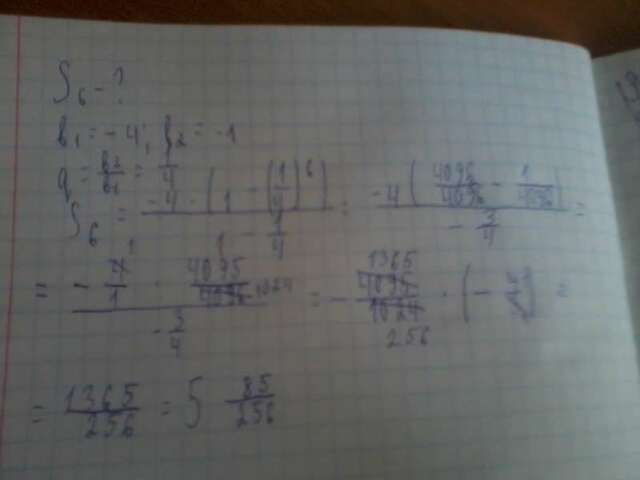 S₆ - ?
b₁ = -4; b₂ = -1
q = b₂/b₁ = 1/4
S₆ = (-4 · (1 - (1/4)⁶))/(1 - 1/4) = (-4(4096/4096 - 1/4096))/(-3/4) =
= (-4/1 · 4095/4096 1024)/(-3/4) = - 1365 4095/1024 256 · (- 4/3) =
= 1365/256 = 5 85/256